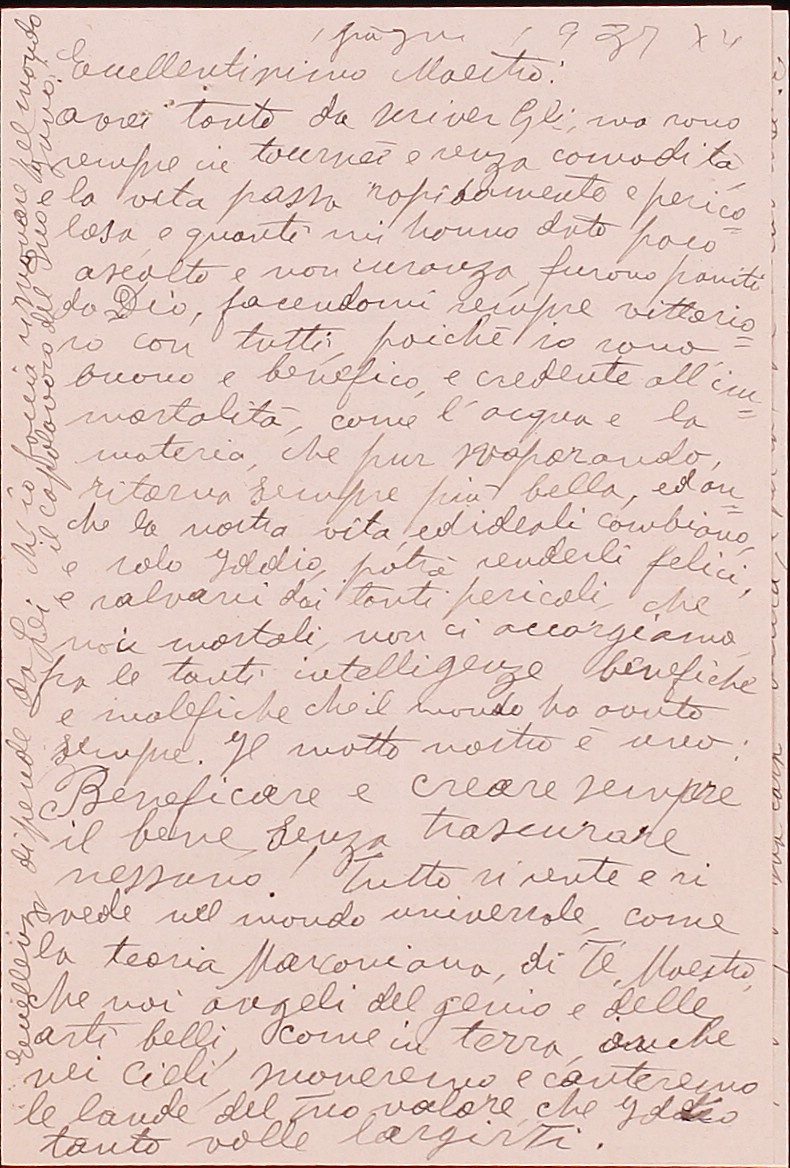 giugno 1937 XV
Eccellentissimo Maestro:
avrei tanto da scriverGli; ma sono
sempre in tourneè e senza comodità,
e la vita passa rapidamente e perico=
losa, e quanti mi hanno dato poco
ascolto e noncuranza, furono puniti
da Dio, facendomi sempre vittorio=
so con tutti, poichè io sono
buono e benefico, e credente all'im=
mortalità, come l'acqua e la
materia, che pur svaporando,
ritorna sempre più bella, ed an=
che la nostra vita, ed ideali cambiano,
e solo Iddio, potrà renderli felici,
e salvarci dai tanti pericoli, che
noi mortali, non ci accorgiamo,
fra le tanti intelligenze benefiche
e malefiche che il mondo ha avuto
sempre. Il motto nostro è uno:
Beneficare e creare sempre
il bene, senza trascurare
nessuno! Tutto si sente e si
vede nel mondo universale, come
la teoria Marconiana, di Te, Maestro,
che noi angeli del genio e delle
arti belli, come in terra, anche
nei cieli, suoneremo e canteremo
le laude del Tuo valore, che Iddio
tanto volle largirTi.
Eccellenza dipende da Lei che io faccia risuonare pel mondo
il capolavoro del Suo e